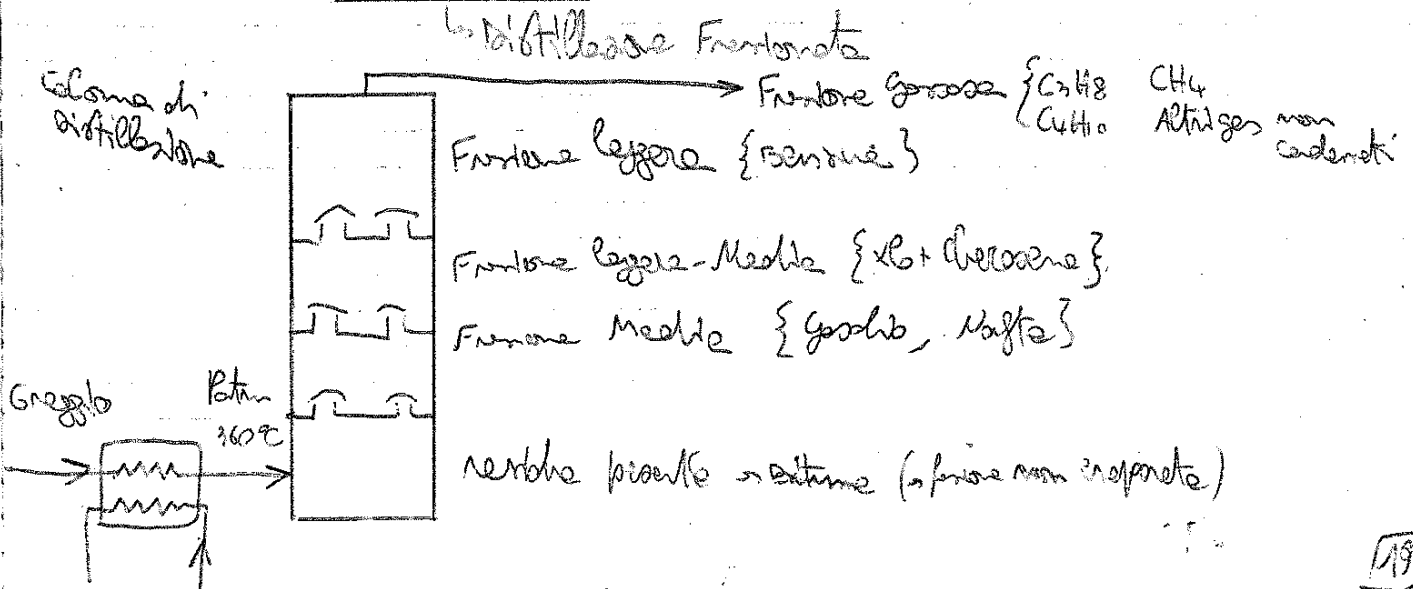 ↳ Distillazione Frazionata
Colonna di
Distillazione
Frazione Gassosa { C3H8 CH4
C4H10 Altri gas non
Frazione leggera {Benzine}
Frazione leggera-Media { Cherosene}
Frazione Media {Gasolio, Nafta}
Greggio
Patm
360°C
pesante → Bitume ( non evaporata)
19